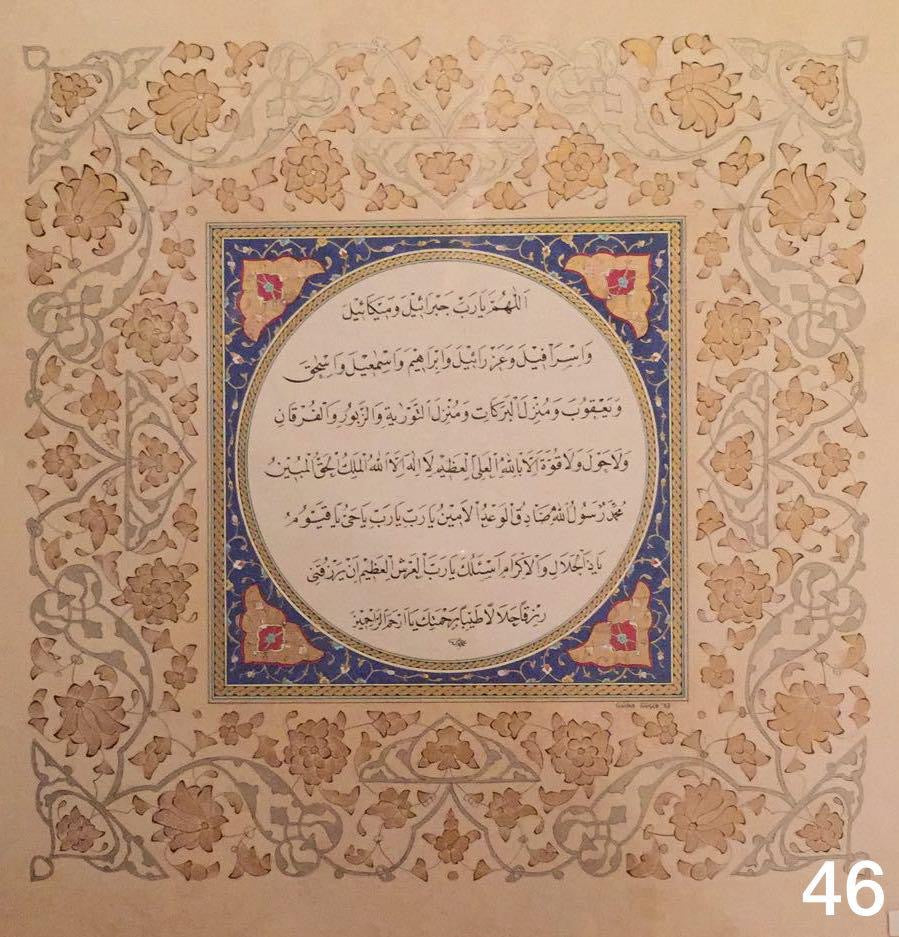 اَللّٰهُمَّ يَا رَبَّ جَبْرَائِيلَ وَمِيكَائِيلَ
وَاِسْرَافِيلَ وَعَزْرَائِيلَ وَاِبْرَاهِيمَ وَاِسْمٰعِيلَ وَاِسْحٰقَ
وَيَعْقُوبَ وَمُنْزِلَ الْبَرَكَاتِ وَمُنْزِلَ التَّوْرٰيةِ وَالزَّبُورِ وَالْفُرْقَانِ
وَلَاحَوْلَ وَلَاقُوَّةَ اِلَّا بِاللّٰهِ الْعَلِيِّ الْعَظِيمِ لَا اِلٰهَ اِلَّا اللّٰهُ الْمَلِكُ الْحَقُّ الْمُبِينُ
مُحَمَّدٌ رَسُولُ اللّٰهِ صَادِقُ الْوَعْدِ الْاَمِينُ يَا رَبِّ يَا رَبِّ يَا رَبِّ يَا حَيُّ يَا قَيُّومُ
يَا ذَا الْجَلَالِ وَالْاِكْرَامِ اَسْئَلُكَ يَا رَبَّ الْعَرْشِ الْعَظِيمِ اَنْ يَرْزُقَنِي
رِزْقًا حَلَالًا طَيِّبًا بِرَحْمَتِكَ يَا اَرْحَمَ الرَّاحِمِينَ
46